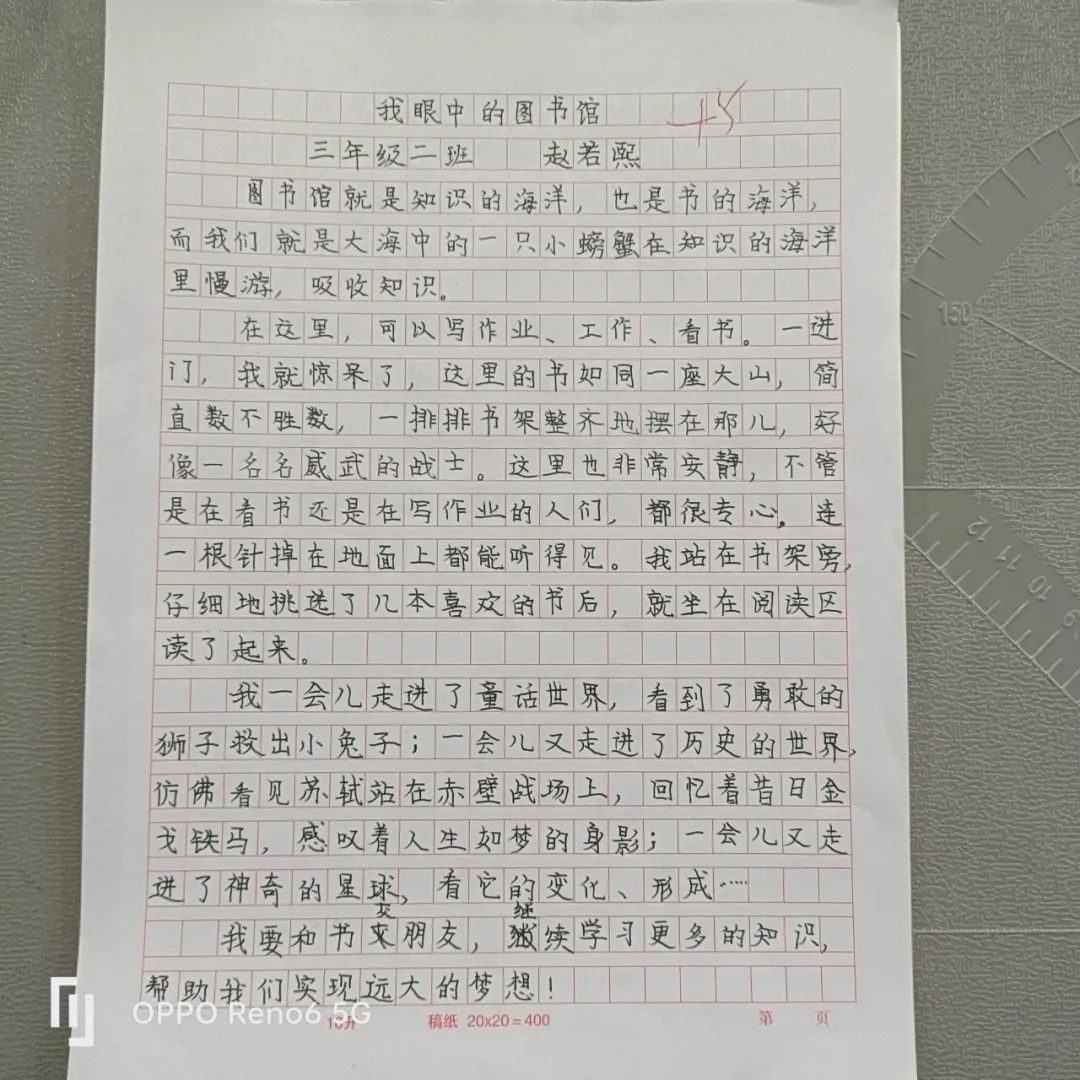 我眼中的图书馆
+5
三年级二班 赵若熙
图书馆就是知识的海洋，也是书的海洋，
而我们就是大海中的一只小螃蟹在知识的海洋
里慢游，吸收知识。
在这里，可以写作业、工作、看书。一进
门，我就惊呆了，这里的书如同一座大山，简
直数不胜数，一排排书架整齐地摆在那儿，好
像一名名威武的战士。这里也非常安静，不管
是在看书还是在写作业的人们，都很专心，连
一根针掉在地面上都能听得见。我站在书架旁，
仔细地挑选了几本喜欢的书后，就坐在阅读区
读了起来。
我一会儿走进了童话世界，看到了勇敢的
狮子救出小兔子；一会儿又走进了历史的世界，
仿佛看见苏轼站在赤壁战场上，回忆着昔日金
戈铁马，感叹着人生如梦的身影；一会儿又走
进了神奇的星球，看它的变化、形成……
我要和书交朋友，继续学习更多的知识，
帮助我们实现远大的梦想！
OPPO Reno6 5G
16开 稿纸 20x20=400 第 页
150
12
11
10
9